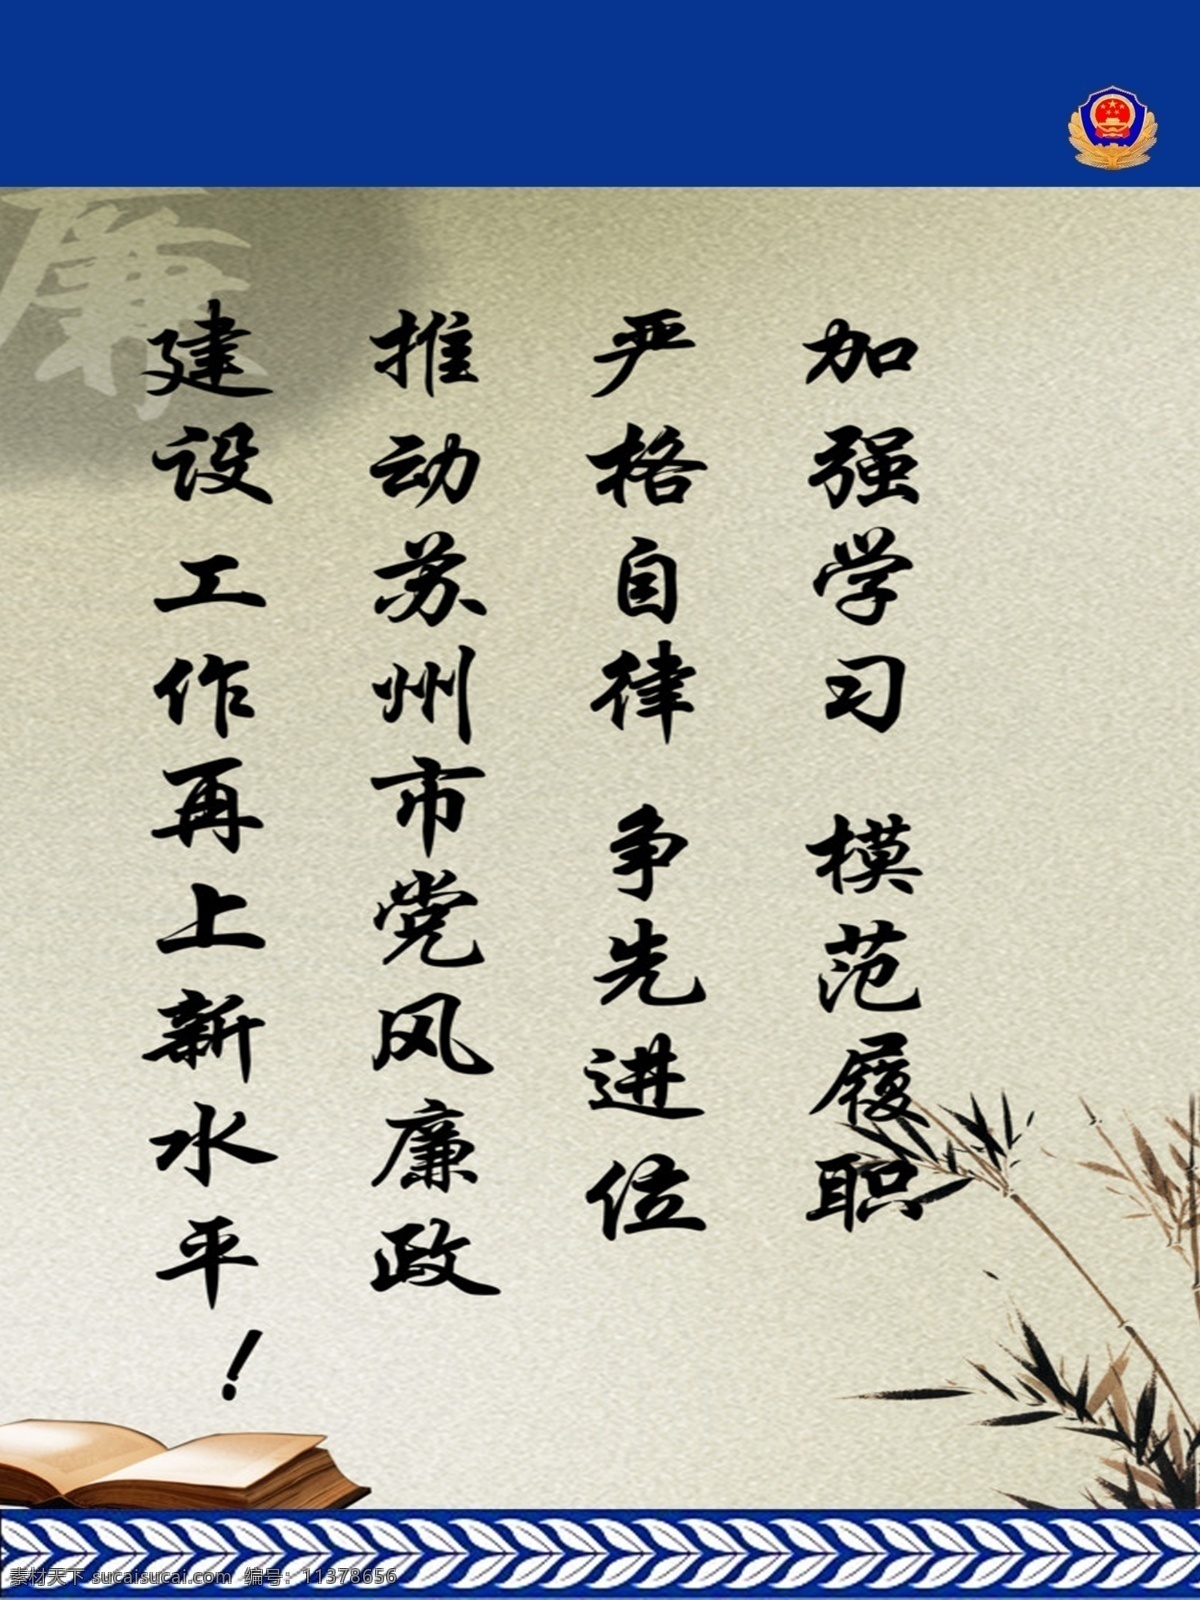 廉
加强学习 模范履职
严格自律 争先进位
推动苏州市党风廉政
建设工作再上新水平！
素材天下 sucaisucai.com 编号：11378656